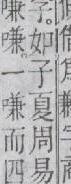 字。如子夏周易
嗛嗛一嗛而四